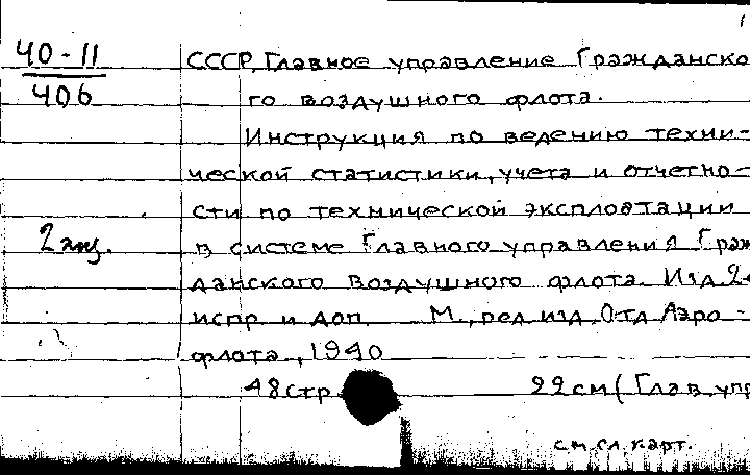 40-11
406
СССР. Главное управление Гражданско
го воздушного флота.
Инструкция по ведению техни-
ческой статистики, учета и отчетно-
сти по технической эксплоатации
2 экз.
в системе Главного управления Граж
данского Воздушного флота. Изд. 2-
испр. и доп. М., ред. изд. Отд. Аэро-
флота, 1940
48 стр. 22 см (Глав. упр
см. сл. карт.